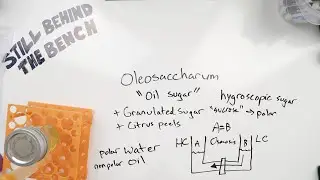 STILL BEHIND
THE BENCH
Oleosaccharum
"Oil sugar" hygroscopic sugar
+ Granulated sugar "sucrose" → polar
+ Citrus peels A=B
polar Water HC A Osmosis B LC
nonpolar oil